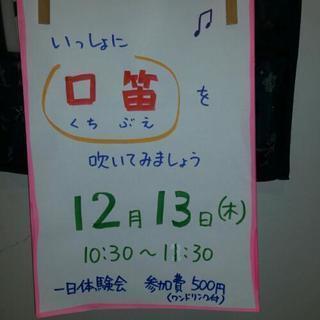 いっしょに
口笛を
くちぶえ
吹いてみましょう
12月13日(木)
10:30〜11:30
一日体験会 参加費500円
(ワンドリンク付)